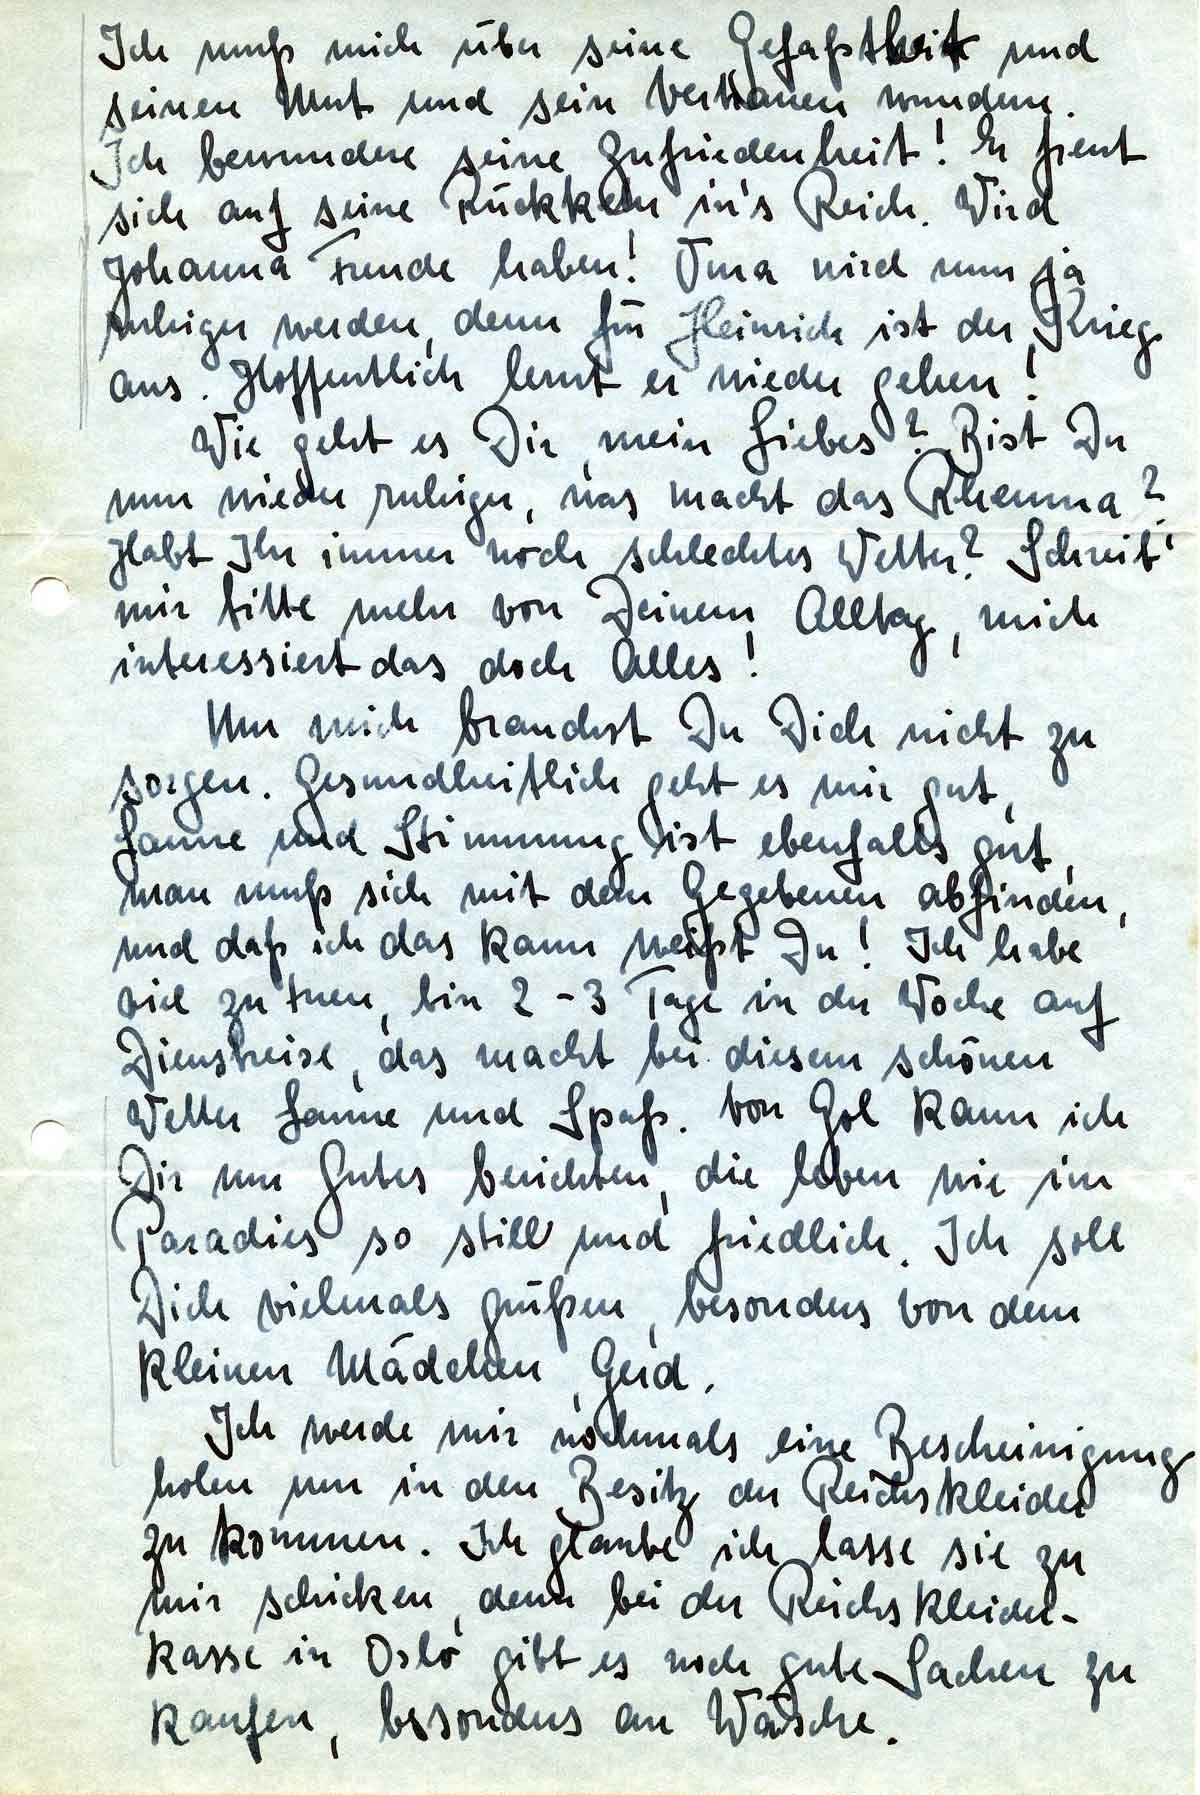 Ich muß mich über seine Gefaßtheit und
seinen Mut und sein Vertrauen wundern.
Ich bewundere seine Zufriedenheit! Er freut
sich auf seine Rückkehr in's Reich. Wird
Johanna Freude haben! Oma wird nun ja
ruhiger werden, denn für Heinrich ist der Krieg
aus. Hoffentlich lernt er wieder gehen!
Wie geht es Dir, mein Liebes? Bist Du
nun wieder ruhiger, was macht das Rheuma?
Habt Ihr immer noch schlechtes Wetter? Schreib'
mir bitte mehr von Deinem Alltag, mich
interessiert das doch Alles!
Um mich brauchst Du Dich nicht zu
sorgen. Gesundheitlich geht es mir gut,
Laune und Stimmung ist ebenfalls gut,
man muß sich mit dem Gegebenen abfinden,
und daß ich das kann weißt Du! Ich habe
viel zu tuen, bin 2-3 Tage in der Woche auf
Dienstreise, das macht bei diesem schönen
Wetter Laune und Spaß. Von Gol kann ich
Dir nur Gutes berichten, die leben wie im
Paradies so still und friedlich. Ich soll
Dich vielmals grüßen, besonders von dem
kleinen Mädchen, Gerd.
Ich werde mir nochmals eine Bescheinigung
holen um in den Besitz der Reichskleider
zu kommen. Ich glaube ich lasse sie zu
mir schicken, denn bei der Reichskleider-
kasse in Oslo gibt es noch gute Sachen zu
kaufen, besonders an Wäsche.